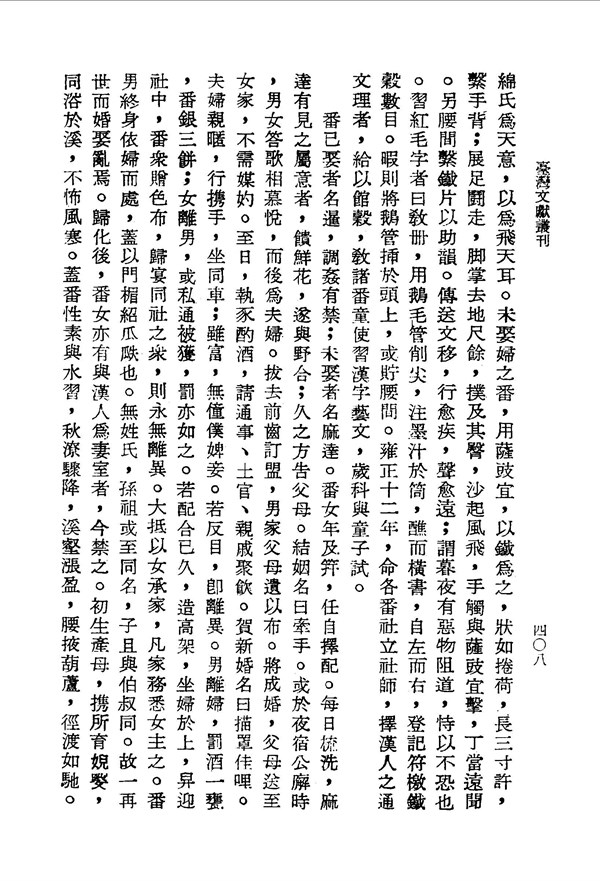 臺灣文獻叢刊
四〇八
綿氏爲天意，以爲飛天耳。未娶婦之番，用薩豉宜，以鐵爲之，狀如捲荷，長三寸許，
繫手背；展足鬪走，脚掌去地尺餘，撲及其臀，沙起風飛，手觸與薩豉宜擊，丁當遠聞
。另腰間繫鐵片以助韻。傳送文移，行愈疾，聲愈遠；謂暮夜有惡物阻道，恃以不恐也
。習紅毛字者曰敎册，用鵝毛管削尖，注墨汁於筒，醮而橫書，自左而右，登記符檄錢
穀數目。暇則將鵝管揷於頭上，或貯腰間。雍正十二年，命各番社立社師，擇漢人之通
文理者，給以館穀，敎諸番童使習漢字藝文，歲科與童子試。
番已娶者名暹，調姦有禁；未娶者名麻達。番女年及笄，任自擇配。每日梳洗，麻
達有見之屬意者，饋鮮花，遂與野合；久之方告父母。結姻名曰牽手。或於夜宿公廨時
，男女答歌相慕悅，而後爲夫婦。拔去前齒訂盟，男家父母遺以布。將成婚，父母送至
女家，不需媒妁。至日，執豕酌酒，請通事、土官、親戚聚飲。賀新婚名曰描罩佳哩。
夫婦親暱，行携手，坐同車；雖富，無僮僕婢妾。若反目，卽離異。男離婦，罰酒一甕
，番銀三餅；女離男，或私通被獲，罰亦如之。若配合已久，造高架，坐婦於上，舁迎
社中，番衆贈色布，歸宴同社之衆，則永無離異。大抵以女承家，凡家務悉女主之。番
男終身依婦而處，蓋以門楣紹瓜瓞也。無姓氏，孫祖或至同名，子且與伯叔同。故一再
世而婚娶亂焉。歸化後，番女亦有與漢人爲妻室者，今禁之。初生產母，携所育婗嫛，
同浴於溪，不怖風寒。蓋番性素與水習，秋潦驟降，溪壑漲盈，腰掖葫蘆，徑渡如馳。